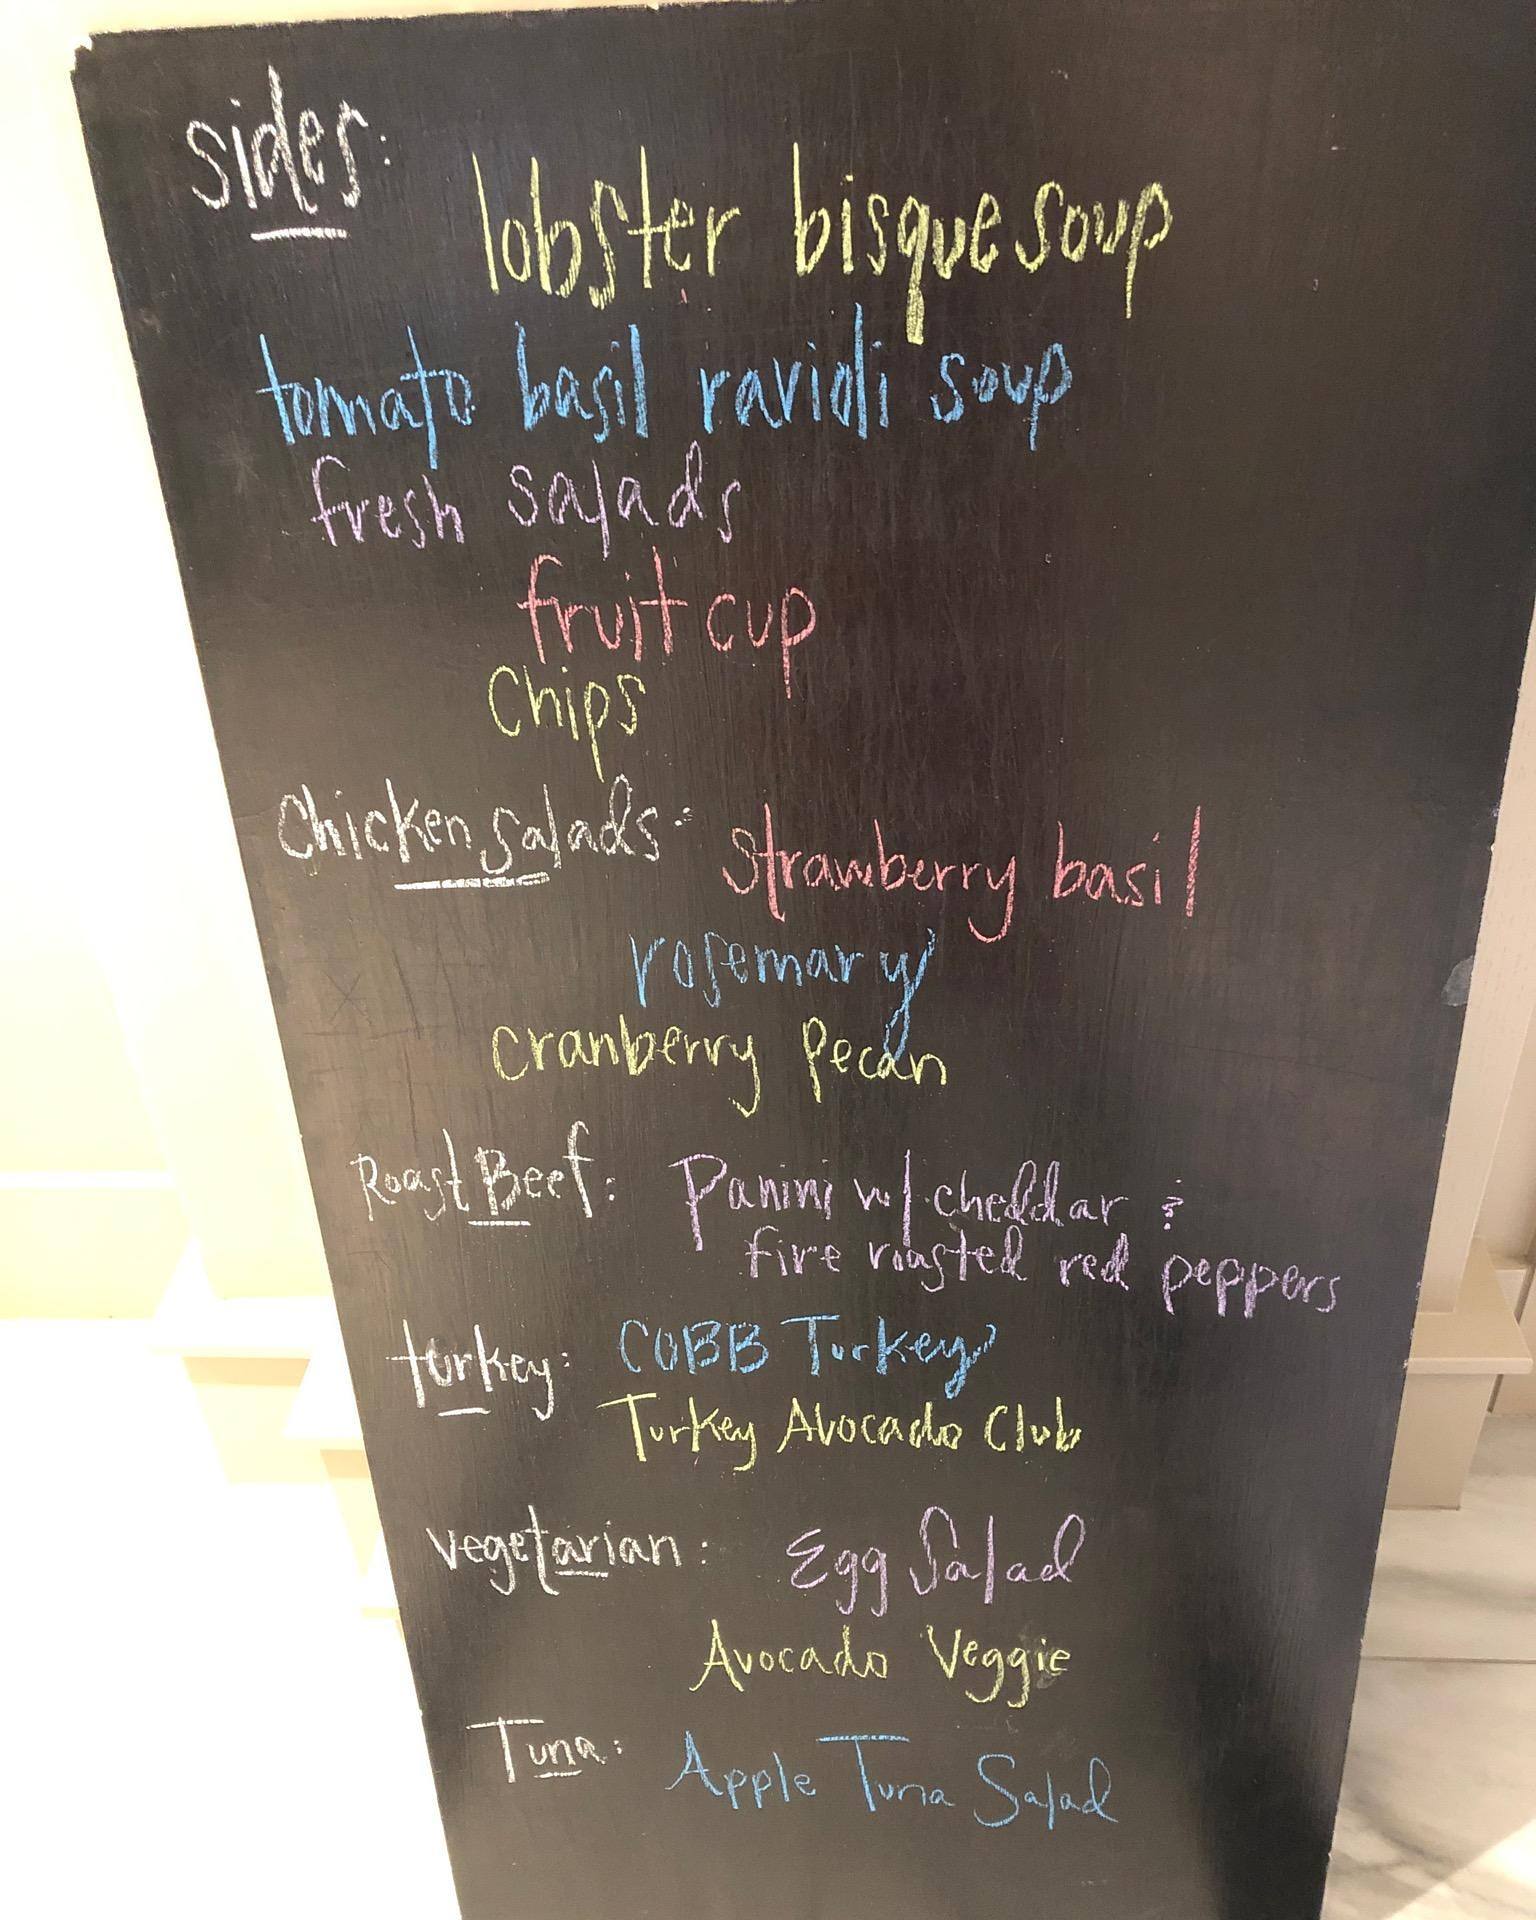 sides:
lobster bisque soup
tomato basil ravioli soup
fresh salads
fruit cup
Chips
Chicken salads: strawberry basil
rosemary
Cranberry Pecan
Roast Beef: Panini w/ cheddar &
fire roasted red peppers
turkey: COBB Turkey
Turkey Avocado Club
vegetarian: Egg Salad
Avocado Veggie
Tuna: Apple Tuna Salad